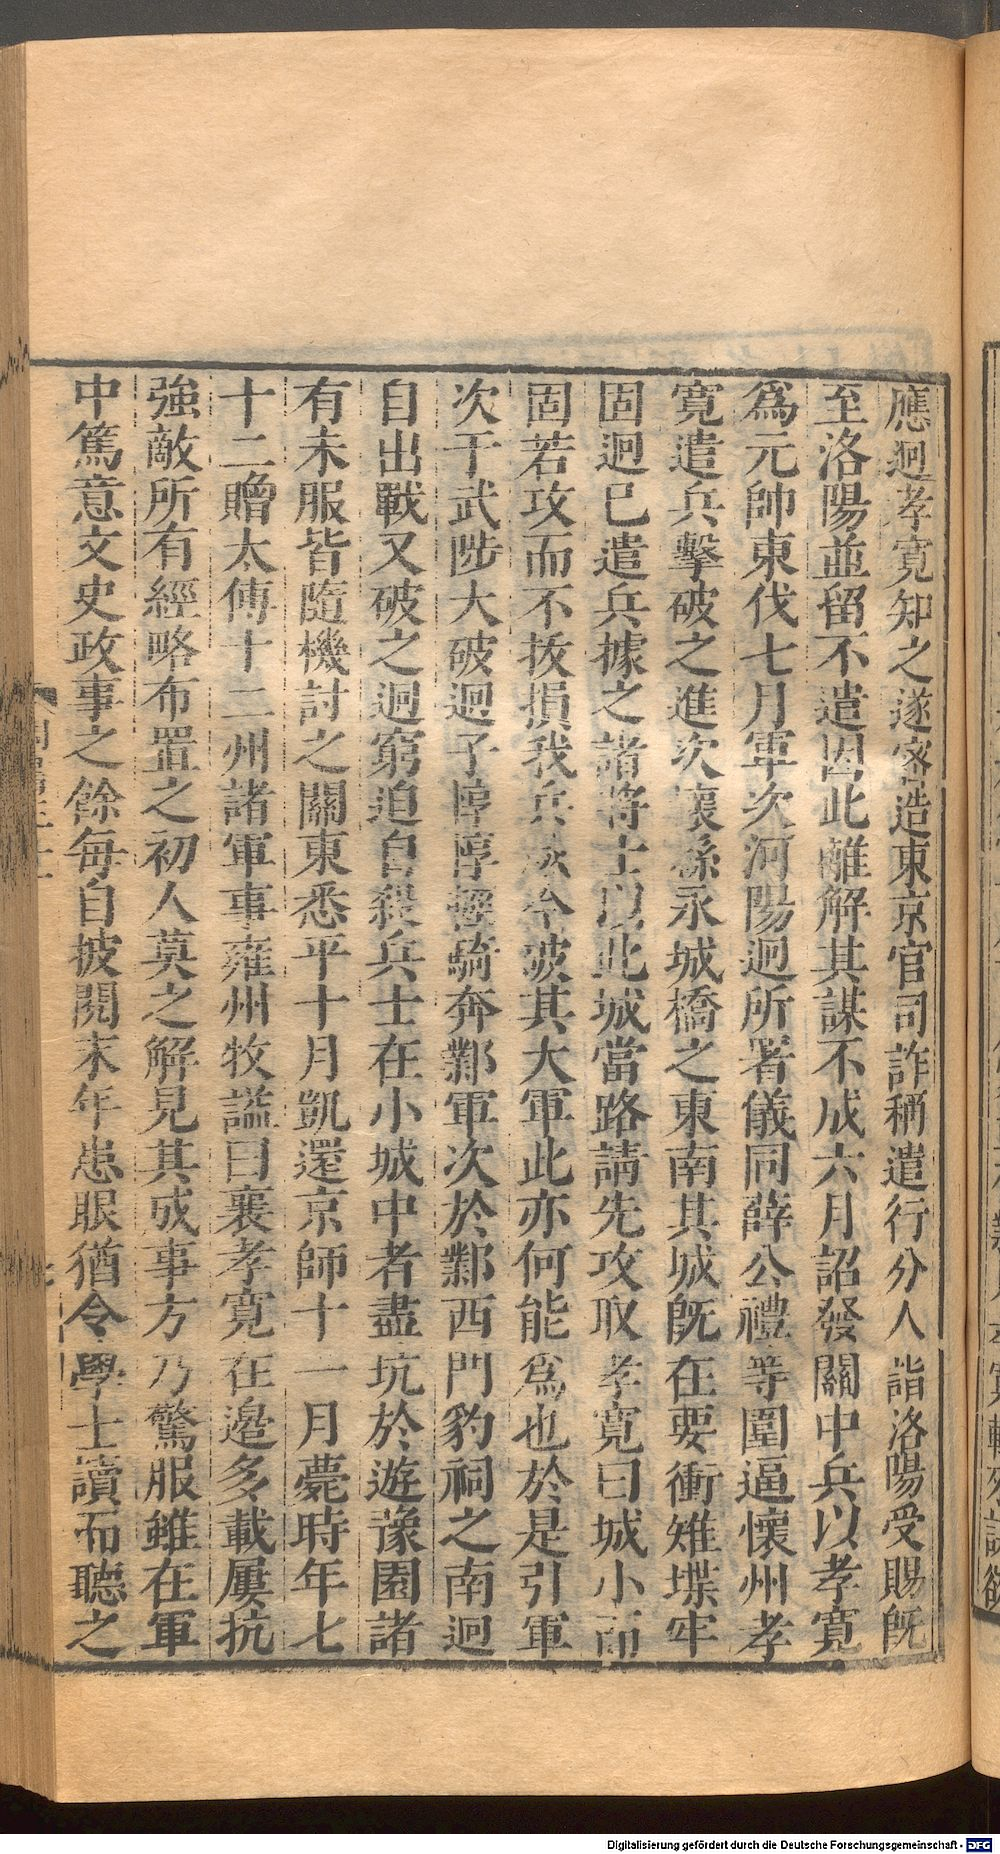 應迥孝寬知之遂密造東京官司詐稱遣行分人詣洛陽受賜旣
至洛陽並留不遣因此離解其謀不成六月詔發關中兵以孝寬
爲元帥東伐七月軍次河陽迥所署儀同薛公禮等圍逼懷州孝
寬遣兵擊破之進次懷縣永城橋之東南其城旣在要衝雉堞牢
固迥已遣兵據之諸將士以此城當路請先攻取孝寬曰城小而
固若攻而不拔損我兵威今破其大軍此亦何能爲也於是引軍
次于武陟大破迥子惇惇輕騎奔鄴軍次於鄴西門豹祠之南迥
自出戰又破之迥窮迫自殺兵士在小城中者盡坑於遊豫園諸
有未服皆隨機討之關東悉平十月凱還京師十一月薨時年七
十二贈太傅十二州諸軍事雍州牧謚曰襄孝寬在邊多載屢抗
強敵所有經略布置之初人莫之解見其成事方乃驚服雖在軍
中篤意文史政事之餘每自披閱末年患眼猶令學士讀而聽之
Digitalisierung gefördert durch die Deutsche Forschungsgemeinschaft - DFG